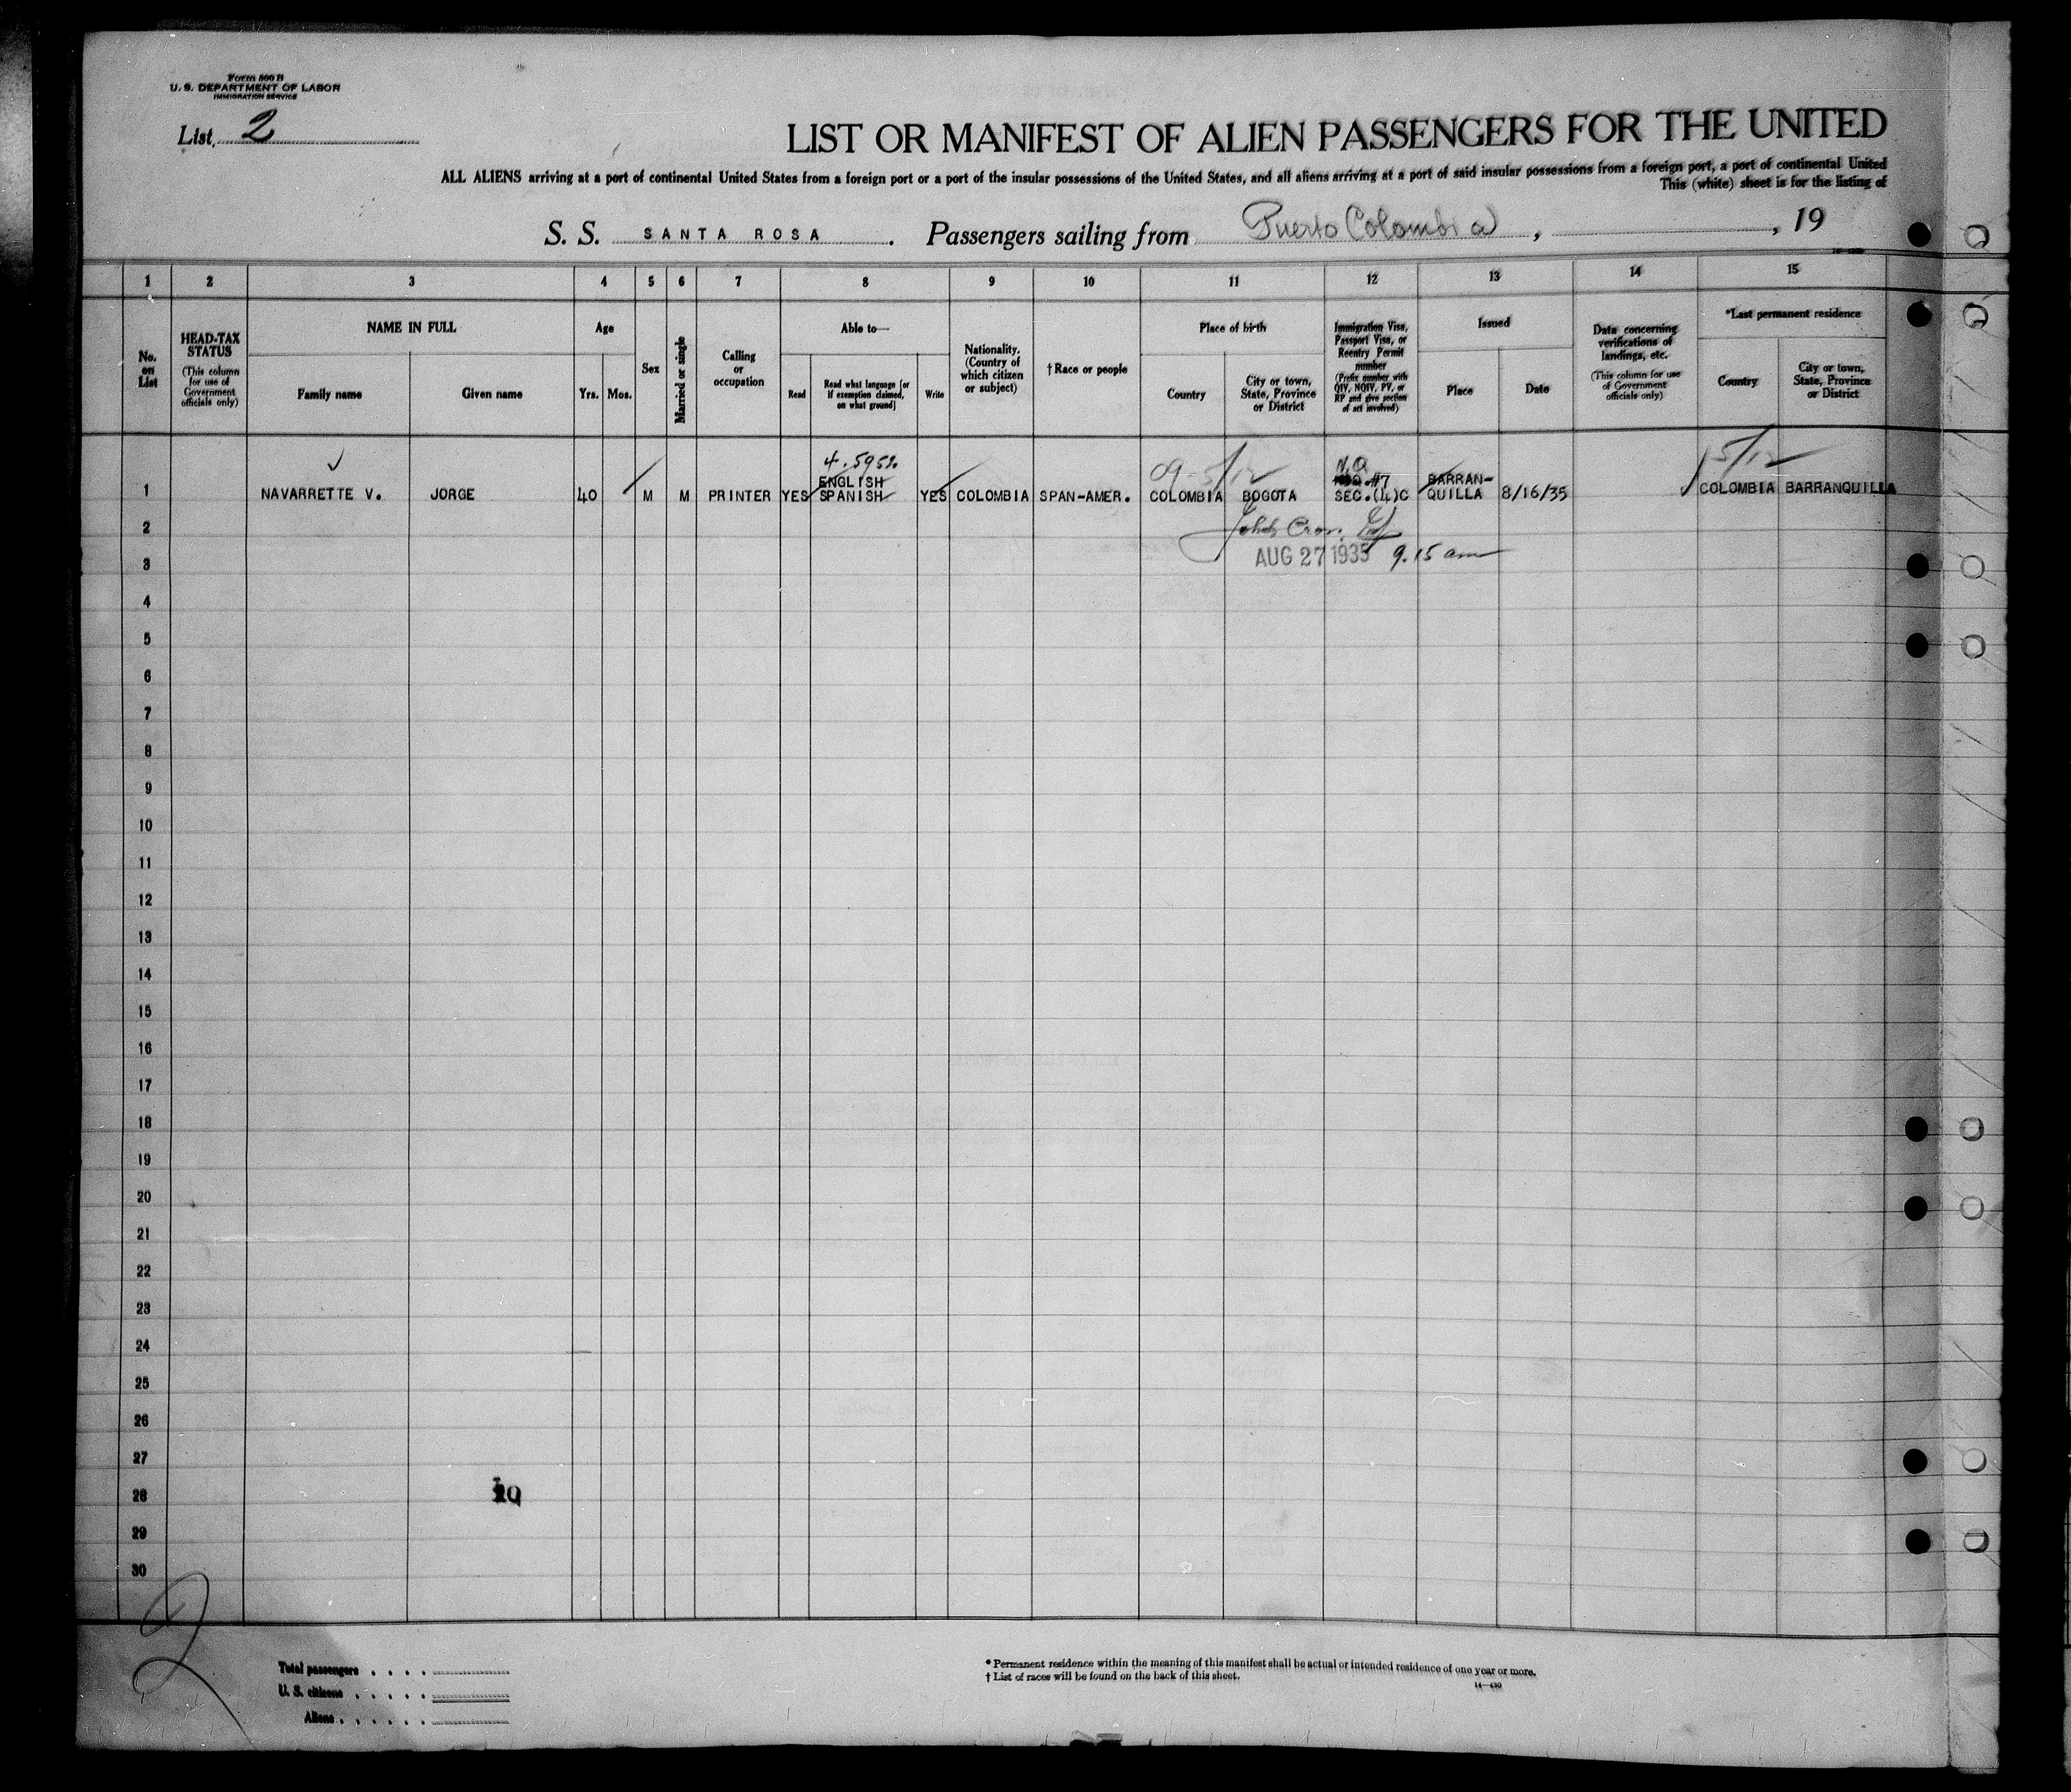 Form 500 B
U. S. DEPARTMENT OF LABOR
IMMIGRATION SERVICE
List 2
LIST OR MANIFEST OF ALIEN PASSENGERS FOR THE UNITED
ALL ALIENS arriving at a port of continental United States from a foreign port or a port of the insular possessions of the United States, and all aliens arriving at a port of said insular possessions from a foreign port, a port of continental United
This (white) sheet is for the listing of
S. S. SANTA ROSA . Passengers sailing from Puerto Colombia , , 19
1 2 3 4 5 6 7 8 9 10 11 12 13 14 15
No. on List
HEAD-TAX STATUS
(This column for use of Government officials only)
NAME IN FULL
Family name
Given name
Age
Yrs. Mos.
Sex
Married or single
Calling or occupation
Able to—
Read
Read what language [or if exemption claimed, on what ground]
Write
Nationality. (Country of which citizen or subject)
† Race or people
Place of birth
Country
City or town, State, Province or District
Immigration Visa, Passport Visa, or Reentry Permit number
(Prefix number with QIV, NQIV, PV, or RP and give section of act involved)
Issued
Place
Date
Data concerning verifications of landings, etc.
(This column for use of Government officials only)
*Last permanent residence
Country
City or town, State, Province or District
4.5952 09-5/12 N.Q 5/12
ENGLISH #7 BARRAN-
1 NAVARRETTE V. JORGE 40 M M PRINTER YES SPANISH YES COLOMBIA SPAN-AMER. COLOMBIA BOGOTA SEC.(4)C QUILLA 8/16/35 COLOMBIA BARRANQUILLA
2
3 AUG 27 1935 9.15 am
4
5
6
7
8
9
10
11
12
13
14
15
16
17
18
19
20
21
22
23
24
25
26
27
28
29
30
2
Total passengers . . . .
U. S. citizens . . . . .
Aliens . . . . . .
* Permanent residence within the meaning of this manifest shall be actual or intended residence of one year or more.
† List of races will be found on the back of this sheet.
14—430